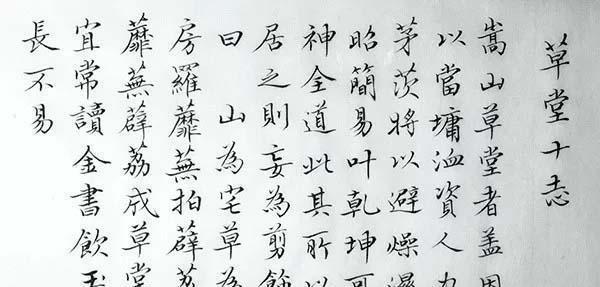 草堂十志
嵩山草堂者盖因
以當墉洫資人力
茅茨將以避燥濕
昭簡易叶乾坤可
神全道此其所以
居之則妄為剪餙
曰 山為宅草為
房羅蘼蕪拍薜荔
蘼蕪薜荔成草堂
宜常讀金書飲玉
長不易